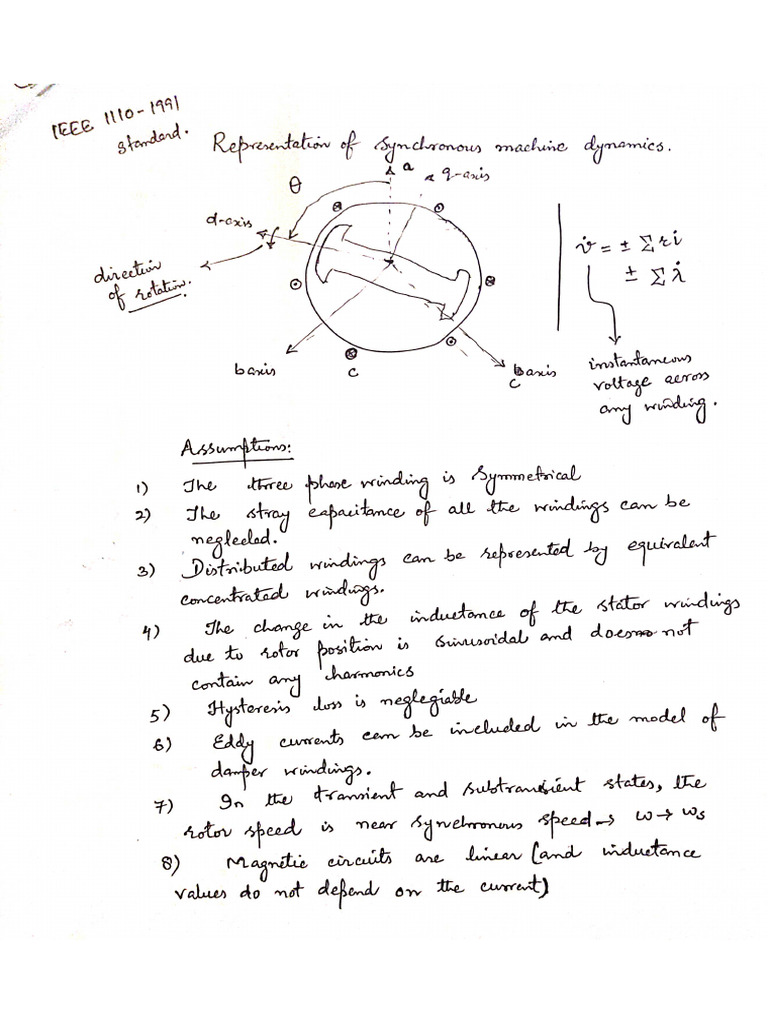 IEEE 1110-1991
standard.
Representation of synchronous machine dynamics.
a
q-axis
θ
d-axis
direction
of rotation.
b axis
c
axis
c
v = ± Σ ri
± Σ λ̇
instantaneous
voltage across
any winding.
Assumptions:
1) The three phase winding is Symmetrical
2) The stray capacitance of all the windings can be
neglected.
3) Distributed windings can be represented by equivalent
concentrated windings.
4) The change in the inductance of the stator windings
due to rotor position is sinusoidal and does not
contain any harmonics
5) Hysteresis loss is neglegiable
6) Eddy currents can be included in the model of
damper windings.
7) In the transient and subtransient states, the
rotor speed is near synchronous speed → ω → ωs
8) Magnetic circuits are linear (and inductance
values do not depend on the current)